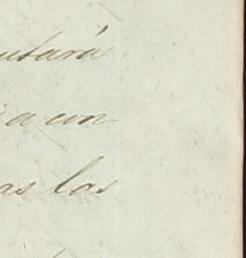 utará
a con
as las